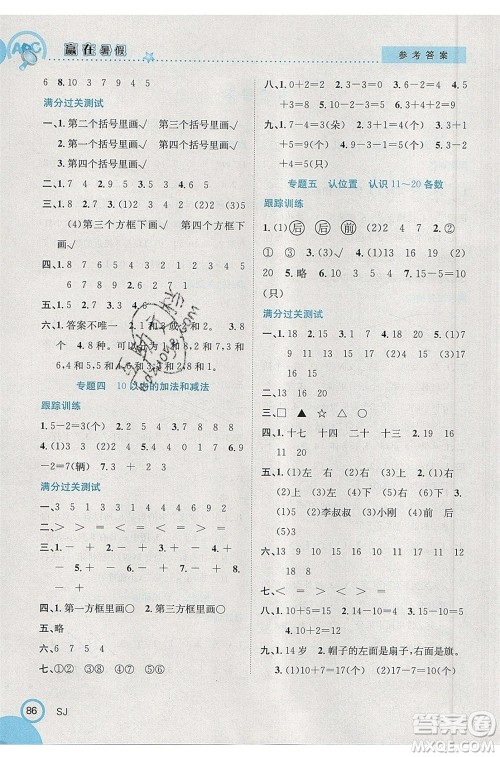 ABC 赢在暑假
参考答案
6 8. 10 3 7 9 4 5
满分过关测试
一、1. 第二个括号里画√ 第三个括号里画√
2. 第三个括号里画√ 第四个括号里画√
二、1 7 4 8 2 9
三、1. (1)7 8 (2)1 (3)6 1
(4)第三个方框下画√ 2. 第三个方框下画√
第四个方框下画√
四、1. 8 7 6 5 4 3 2 1
2. 1 2 3 4 5 6 7 8
五、2 4 1 3
六、1. 答案不唯一
3. 8 4. 8种。
6,4和5,1和8,3和7
专题四 10以内的加法和减法
跟踪训练
1. 5-2=3 2. (1)2 (2)8 3. 8-1=7
4. 9-2=7(辆) 5. (1)> (2)=
满分过关测试
一、5 4 9 0 3 2 7
二、< > = = > < = >
三、1. - + - + 2. - + + +
四、1. 第一方框里画○ 2. 第一方框里画○
五、略
六、6 7 5 4
七、①② ③④ ⑤⑥
八、(1)4+6=10 (2)6+2=8 (3)4-2=2
(4)3+5=8
九、1. 7-4=3(朵) 2. 3+1=4(个)
3. 4+5=9(只)
专题五 认位置 认识11~20各数
跟踪训练
1. (1)后 后 前 (2)2 4 (3)7 4 ②
① ③ 2. (1)> (2)= 3. (1)9 (2)18
(3)20 5. 略 6. 10+7=17(个) 7. 15-5=10
(只)
满分过关测试
一、1. 18 2. 19 5 3. 15 4. 13 16 18
17 9 11 15 13 11 9
二、15 16 20 16 12 17
三、□ ▲ ☆ △
四、1. 十七 十四 十二 二十 2. 19 13
16 11 20
五、1. (1)左 右 (2)左 右 2. (1)上 左
(2)左 下 3. (1)李叔叔 (2)小刚 (3)上
六、13 12 11 19 10 9
14 10 10 7 17 8
七、< = < > = > = >
八、1. 10+8=18 2. 12-2=10
3. 10+2=12 4. 19-9=10 18-8=10
九、1. 12岁 2. 帽子的左面是扇子,右面是旗。
3. (1)12+2=14(个) (2)17-7=10(只)
86 SJ